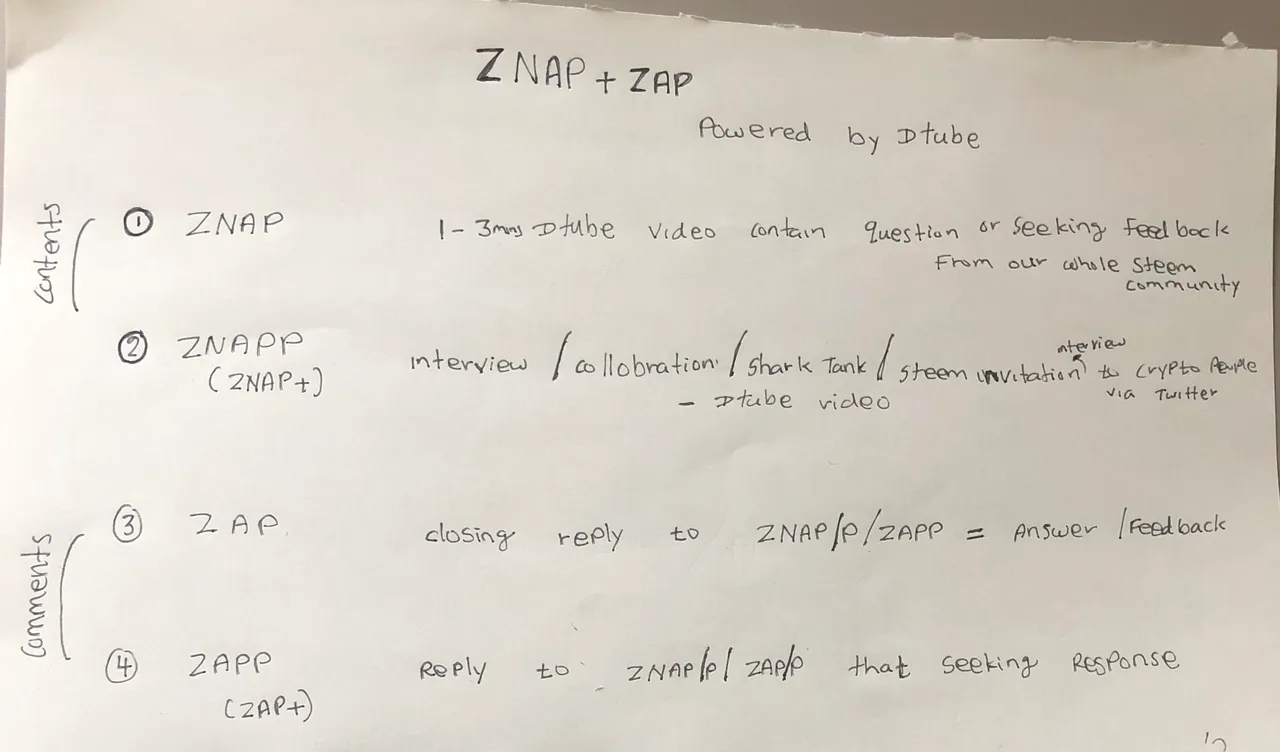 ZNAP + ZAP
Powered by Dtube
Contents
① ZNAP 1-3mns Dtube video contain question or seeking feedback
From our whole steem
community
② ZNAPP interview / collobration / shark Tank / steem invitation interview to crypto people
(ZNAP+) - Dtube video via Twitter
Comments
③ ZAP closing reply to ZNAP/P/ZAPP = Answer / Feedback
④ ZAPP Reply to ZNAP/P/ ZAP/P that seeking Response
(ZAP+)